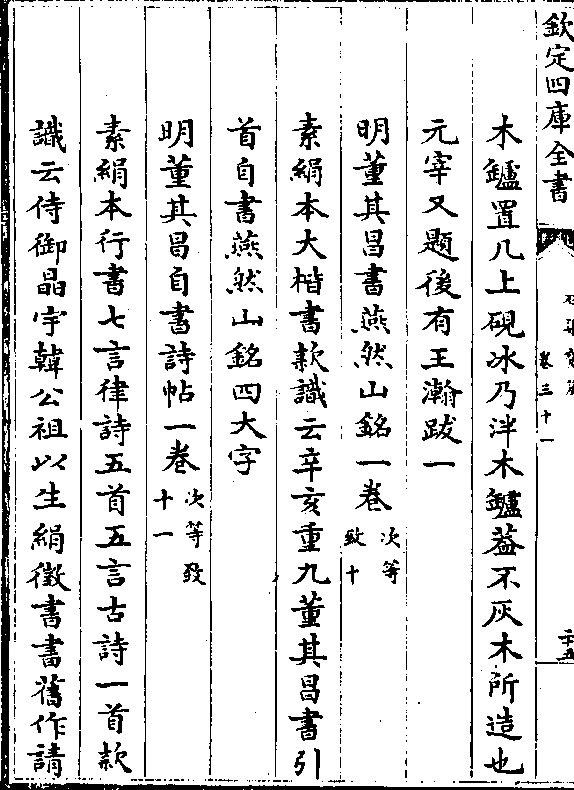 欽定四庫全書
卷三十一
木鑪置几上硯冰乃泮木鑪葢不灰木所造也
元宰又題後有王瀚跋一
明董其昌書燕然山銘一卷
次等
致十
素絹本大楷書款識云辛亥重九董其昌書引
首自書燕然山銘四大字
明董其昌自書詩帖一卷
次等致
十一
素絹本行書七言律詩五首五言古詩一首款
識云侍御晶宇韓公祖以生絹徵書書舊作請